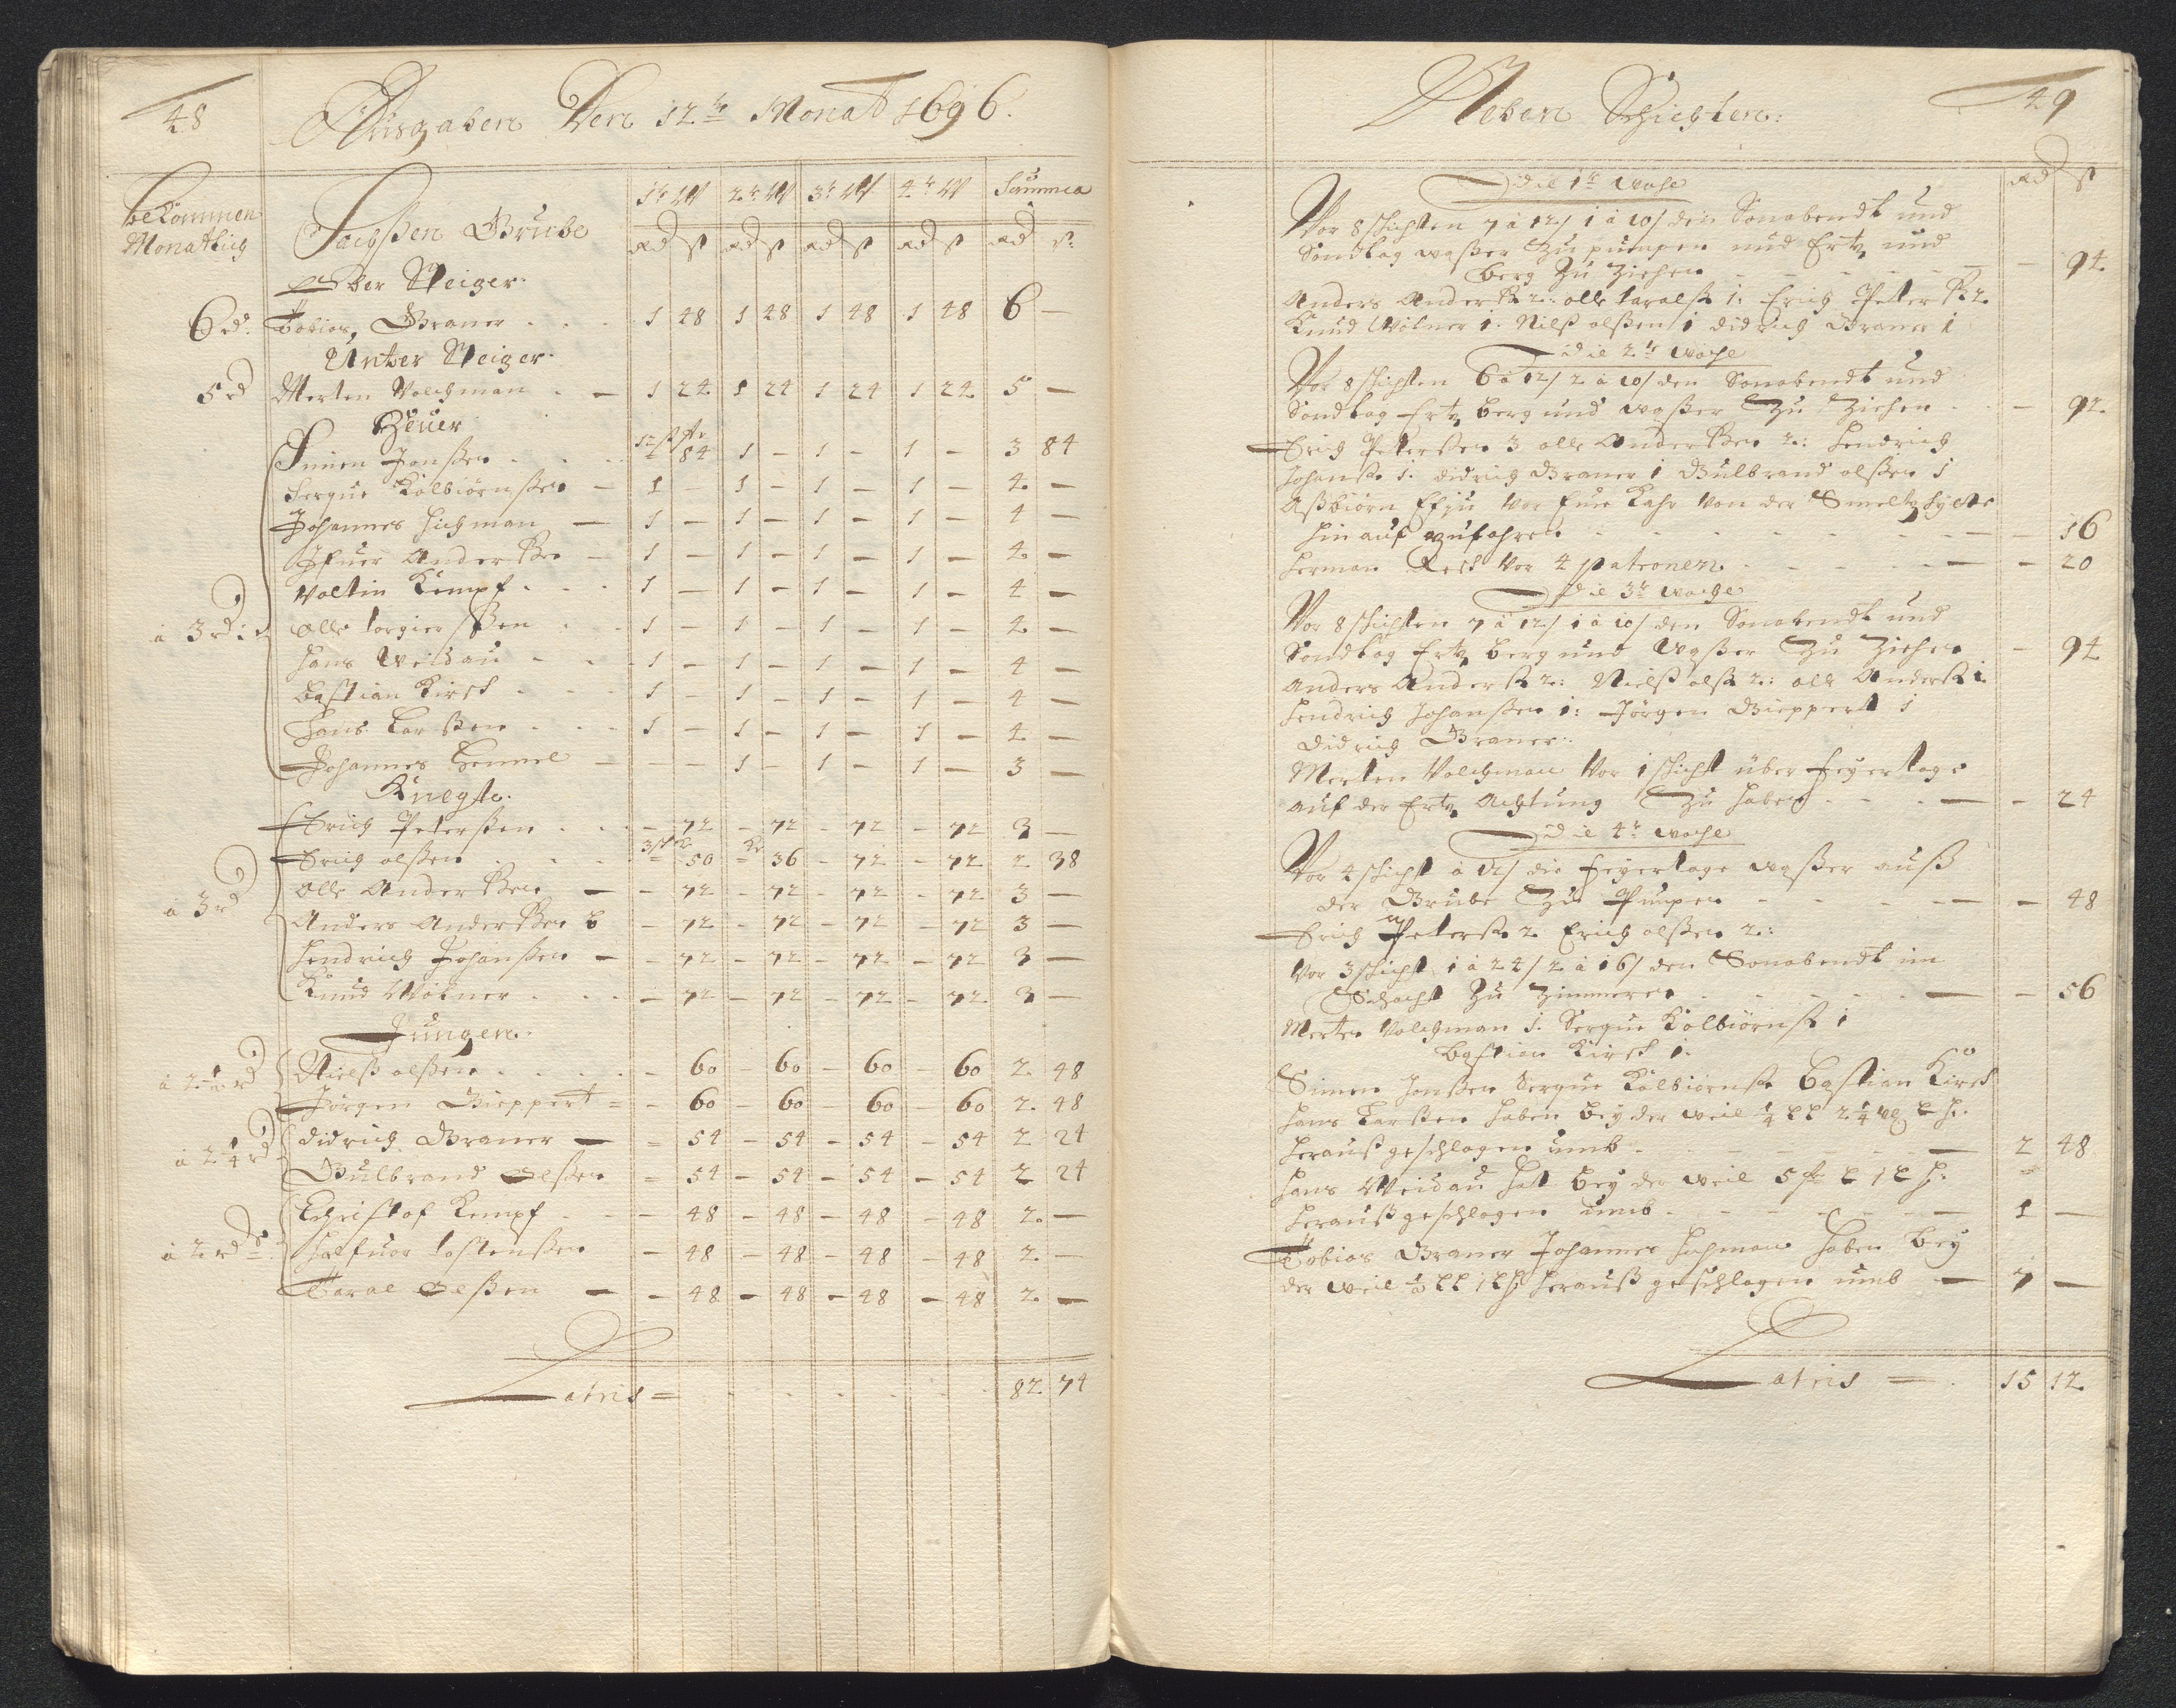 48
Ausgaben Den 12te Monat 1696.
bekommen Monatlich
Sachßen Grube
1te W 2te W 3te W 4te W Summa
rd ß rd ß rd ß rd ß rd ß
Ober Steiger
6 rd Tobias Braner 1 48 1 48 1 48 1 48 6 —
Unter Steiger
5 rd Merten Volchman — 1 24 1 24 1 24 1 24 5 —
Heuer
Simen Jonßen 84 1 — 1 — 1 — 3 84
Sergue Kolbiörnßen — 1 — 1 — 1 — 1 — 4 —
Johannes Hichman — 1 — 1 — 1 — 1 — 4 —
Ifuer Anderßen — 1 — 1 — 1 — 1 — 4 —
Valtin Kempf 1 — 1 — 1 — 1 — 4 —
à 3 rd Olle Torgierßen 1 — 1 — 1 — 1 — 4 —
Hans Weidau 1 — 1 — 1 — 1 — 4 —
Bastian Kirsch 1 — 1 — 1 — 1 — 4 —
Hans Larßen 1 — 1 — 1 — 1 — 4 —
Johannes Hemmel — — — 1 — 1 — 1 — 3 —
Knegte
Erich Peterßen — 72 — 72 — 72 — 72 3 —
Erich Olßen 50 36 — 72 — 72 2 38
à 3 rd Olle Anderßen — — 72 — 72 — 72 — 72 3 —
Anders Anderßen — 72 — 72 — 72 — 72 3 —
Hendrich Johanßen — — 72 — 72 — 72 — 72 3 —
Knud Wölner — 72 — 72 — 72 — 72 3 —
Jungen
à 2½ rd Nielß olßen — 60 — 60 — 60 — 60 2 48
Jörgen Gieppert — 60 — 60 — 60 — 60 2 48
à 2¼ rd Didrich Braner — 54 — 54 — 54 — 54 2 24
Gulbrand Olßen — 54 — 54 — 54 — 54 2 24
Christof Kempf — 48 — 48 — 48 — 48 2 —
à 2 rd Halfuor Tostenßen — 48 — 48 — 48 — 48 2 —
Taral Olßen — — 48 — 48 — 48 — 48 2 —
Latris 82 74
Neben Schichten:
49
rd ß
Die 1te Woche
Vor 8 schichten 7 à 12/ 1 à 10/ den Sonabendt und
Sondtag waßer Zu pumpen und Ertz und
berg Zu Ziehen — 94
Anders Anderß 2: olle Taralß 1: Erich Peterß 2
Knud Wölner 1. Nilß olßen 1 Didrich Braner 1
Die 2te Woche
Vor 8 schichten 6 à 12/ 2 à 10/ den Sonabendt und
Sondtag Ertz berg und waßer Zu Ziehen — 92
Erich Peterßen 3 olle Anderßen 2: Hendrich
Johanß 1: Didrich Braner 1 Gulbrand olßen 1
Aßbiörn Efju vor Eine Kahr von der Smeltz Hytte
hin auf zufahren — 16
Herman Rest vor 4 patronen — 20
Die 3te Woche
Vor 8 schichten 7 à 12/ 1 à 10/ den Sonabendt und
Sondtag Ertz berg und Waßer Zu Ziehen — 94
Anders Anderß 2: Nielß olß 2: olle Anderß 1
Hendrich Johanßen 1: Jörgen Gieppert 1
Didrich Braner:
Merten Volchman vor 1 schicht über feyertage
auf der Ertz Achtung Zu haben — 24
Die 4te Woche
Vor 4 schicht à 12/ die feyertage waßer auß
der Grube Zu Pumpen — 48
Erich Peterß 2 Erich olßen 2:
Vor 3 schicht 1 à 24/ 2 à 16/ den Sonabendt im
Schacht Zu Zimmeren — 56
Merten Volchman 1. Sergue Kolbiörnß 1
Bastian Kirsch 1.
Simen Jonßen Sergue Kolbiörnß Bastian Kirsch
Hans Larßen haben bey der weil ¼ 2¼
herauß geschlagen umb — 2 48
Hans Weidau hat bey der weil 5 1
herauß geschlagen umb — 1 —
Tobias Braner Johannes Hichman haben bey
der weil herauß geschlagen umb — 7 —
Latris — 15 12